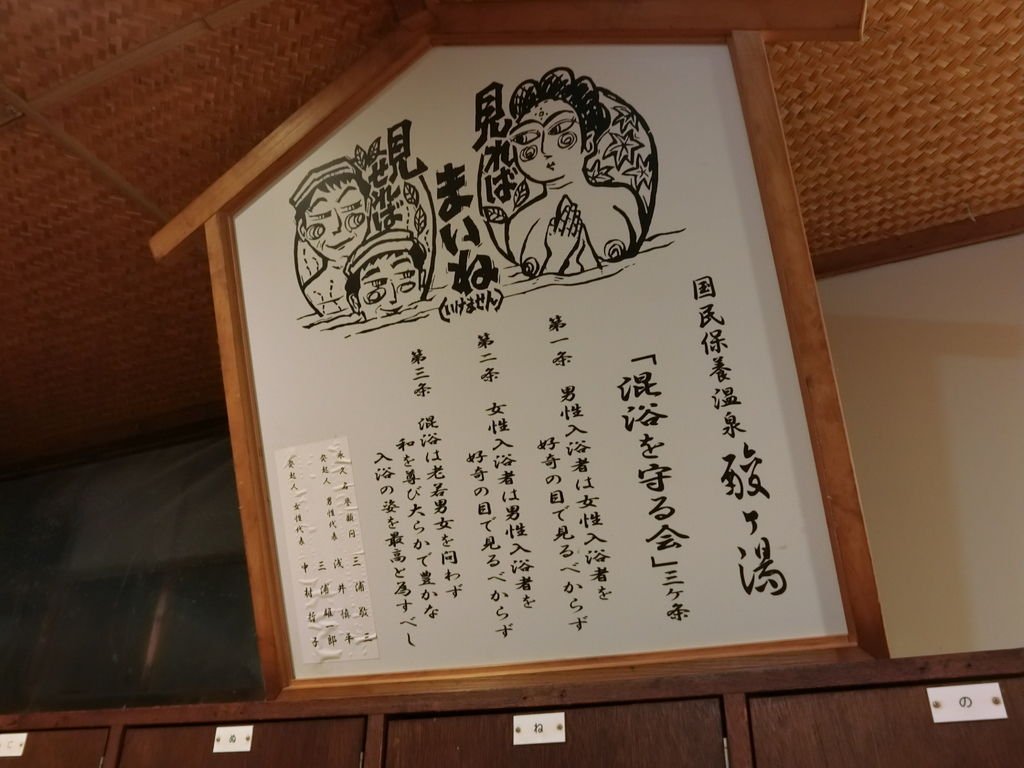 見れば
まいね
(いけません)
見せれば
国民保養温泉 酸ヶ湯
「混浴を守る会」三ヶ条
第一条 男性入浴者は女性入浴者を
好奇の目で見るべからず
第二条 女性入浴者は男性入浴者を
好奇の目で見るべからず
第三条 混浴は老若男女を問わず
和を尊び大らかで豊かな
入浴の姿を最高と為すべし
永久名誉顧問 三浦敬三
発起人 男性代表 浅井慎平
三浦雄一郎
発起人 女性代表 中村哲子
ぬ
ね
の